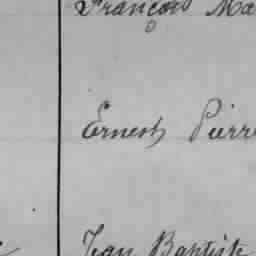 François Ma
Ernest Pierre
Jean Baptiste